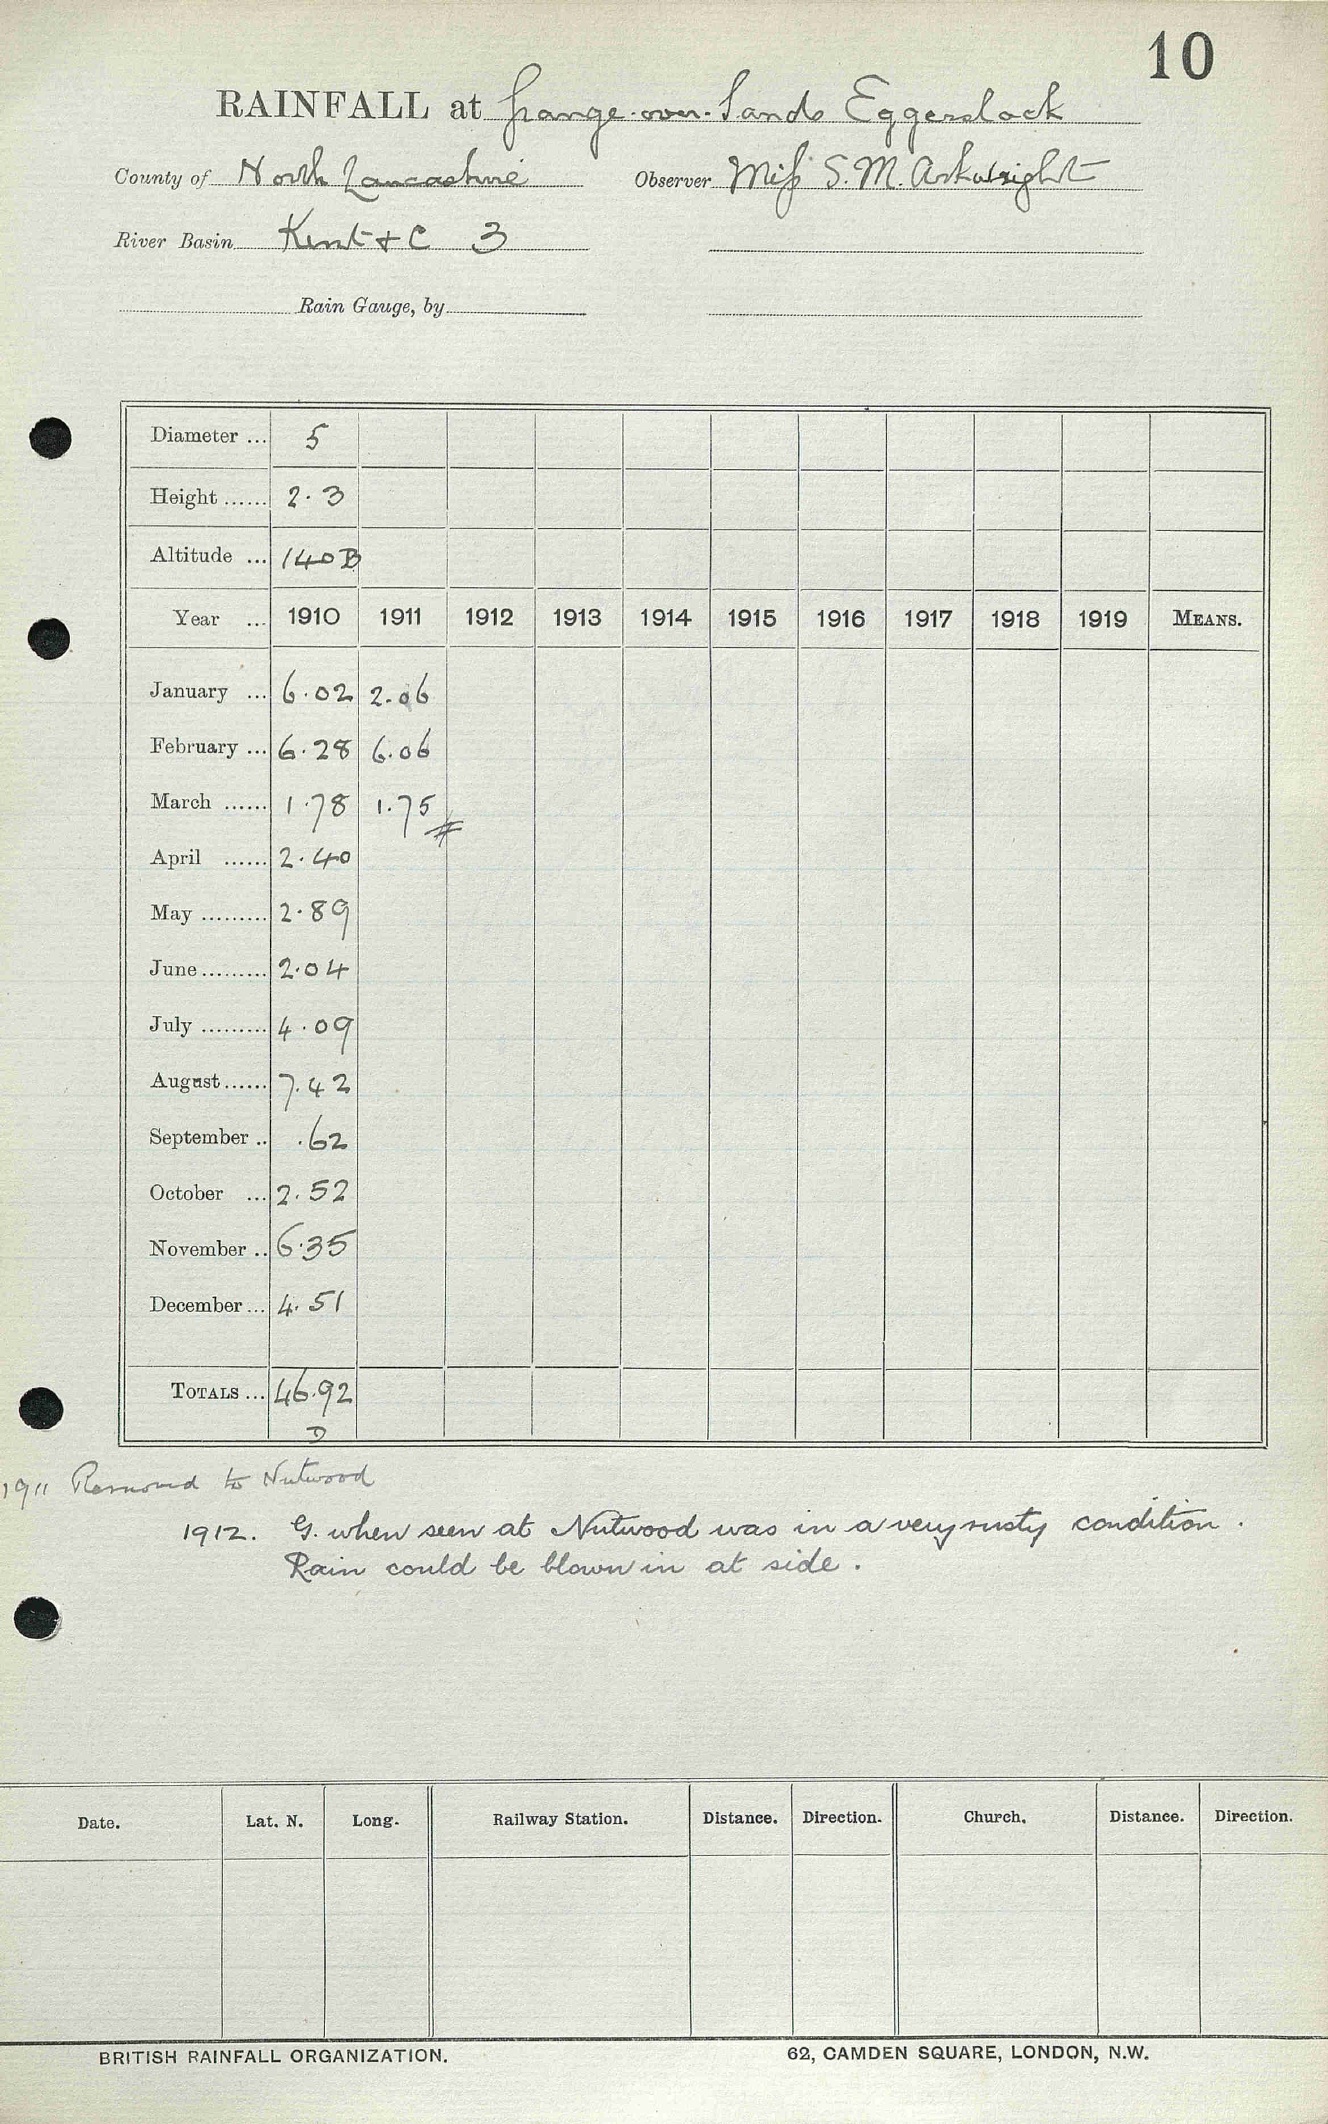 10
RAINFALL at Grange-over-Sands Eggerslack
County of North Lancashire Observer Miss S. M. Arkwright
River Basin Kent & C 3
Rain Gauge, by
Diameter ... 5
Height ...... 2.3
Altitude ... 140 B
Year ... 1910 1911 1912 1913 1914 1915 1916 1917 1918 1919 MEANS.
January ... 6.02 2.06
February ... 6.28 6.06
March ...... 1.78 1.75 #
April ...... 2.40
May ......... 2.89
June ......... 2.04
July ......... 4.09
August ...... 7.42
September .. .62
October ... 2.52
November .. 6.35
December ... 4.51
TOTALS ... 46.92
D
1911 Removed to Nutwood
1912. G. when seen at Nutwood was in a very rusty condition.
Rain could be blown in at side.
Date. Lat. N. Long. Railway Station. Distance. Direction. Church. Distance. Direction.
BRITISH RAINFALL ORGANIZATION. 62, CAMDEN SQUARE, LONDON, N.W.